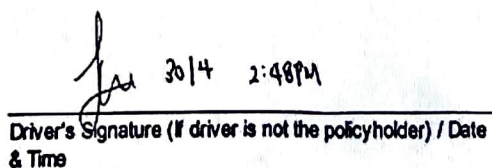 30/4 2:48PM
Driver's Signature (If driver is not the policyholder) / Date
& Time